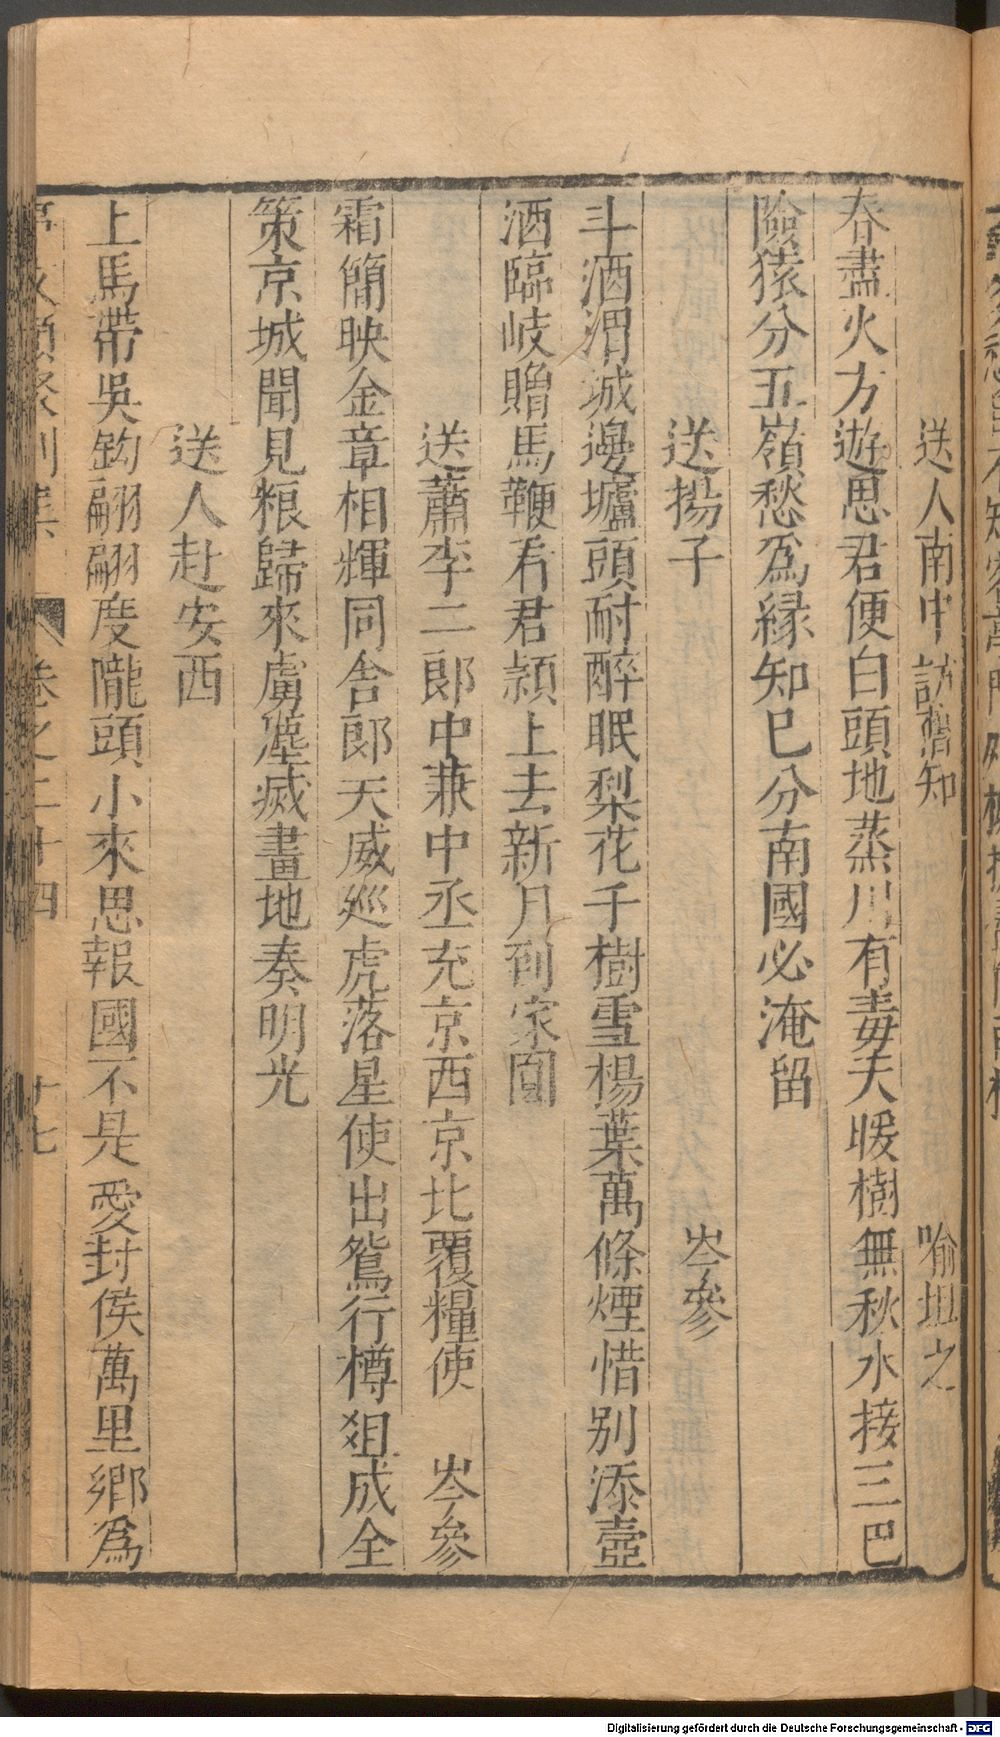 送人南中訪舊知　喻坦之
春盡火方遊思君便白頭地蒸川有毒天暖樹無秋水接三巴
險猿分五嶺愁爲緣知巳分南國必淹留
送揚子　岑參
斗酒渭城邊壚頭耐醉眠梨花千樹雪楊葉萬條煙惜别添壺
酒臨岐贈馬鞭看君潁上去新月到家圓
送蕭李二郎中兼中丞充京西京比覆糧使　岑參
霜簡映金章相輝同舍郎天威巡虎落星使出鴛行樽俎成全
策京城聞見粮歸來虜塵滅畫地奏明光
送人赴安西
上馬帶吳鈎翩翩度隴頭小來思報國不是愛封侯萬里鄉爲
卷之二十四　十七
Digitalisierung gefördert durch die Deutsche Forschungsgemeinschaft - DFG